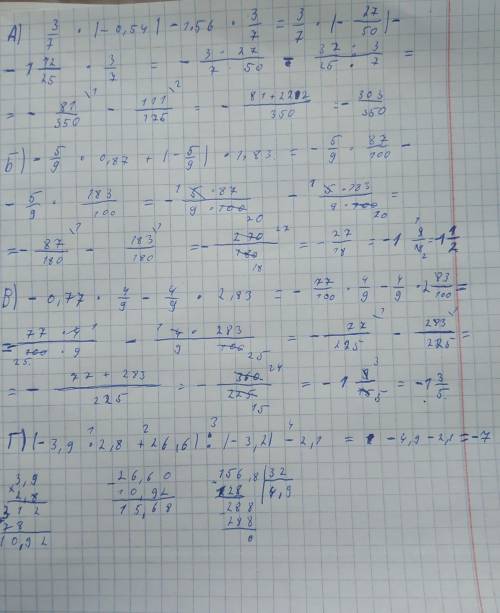 А) 3/7 · (-0,54) - 1,56 · 3/7 = 3/7 · (-27/50) -
- 1 12/25 · 3/7 = - 3 · 27/7 · 50 - 37 · 3/25 · 7 =
= - 81/350 - 111/175 = - 81+222/350 = - 303/350
Б) - 5/9 · 0,87 + (-5/9) · 1,83 = - 5/9 · 87/100 -
- 5/9 · 183/100 = - 5 · 87/9 · 100 - 5 · 183/9 · 100 =
= - 87/180 - 183/180 = - 270/180 = - 27/18 = - 1 9/18 = 1 1/2
В) - 0,77 · 4/9 - 4/9 · 2,83 = - 77/100 · 4/9 - 4/9 · 2 83/100 =
= 77 · 4/100 · 9 - 4 · 283/9 · 100 = - 77/225 - 283/225 =
= - 77 + 283/225 = - 360/225 = - 1 9/15 = - 1 3/5
Г) (-3,9 · 2,8 + 26,6) : (-3,2) - 2,1 = - 4,9 - 2,1 = -7
3,9
2,8
312
78
10,92
26,60
10,92
15,68
156,8 32
128 4,9
288
288
0